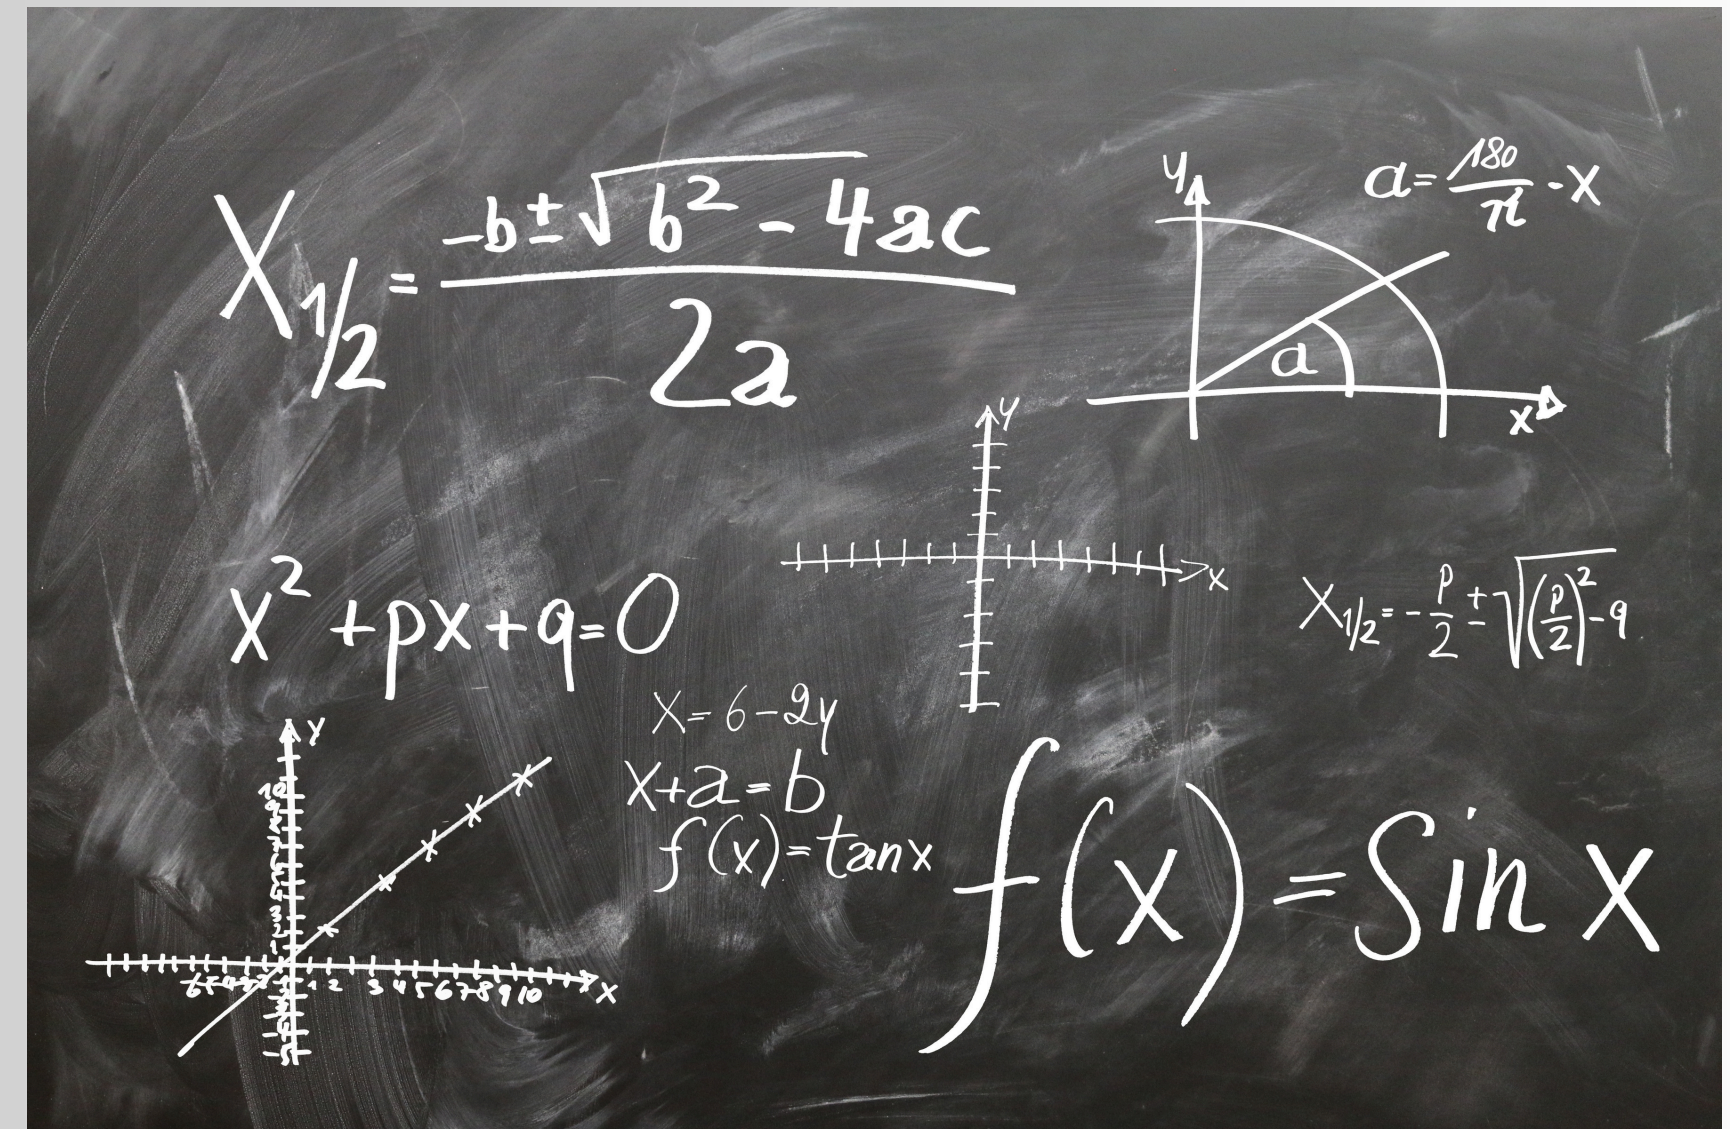 X1/2 = -b ± √b² - 4ac / 2a
y
a = 180/π - x
a
x
y
x
x² + px + q = 0
X1/2 = - p/2 ± √(p/2)² - q
x = 6 - 2y
x + a = b
f(x) = tan x
f(x) = Sin x
y
10
9
3
2
1
1 2 3 4 5 6 7 8 9 10
x